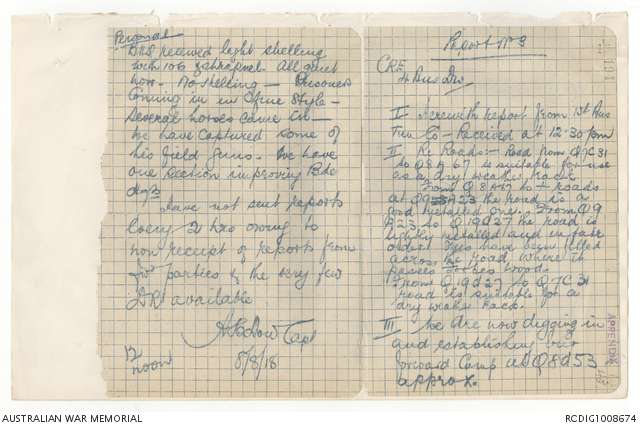 Personal
BHS received light shelling
with 106 & shrapnel. All quiet
now. No shelling - Prisoners
coming in in fine style -
Several horses came in -
We have captured some of
his field guns. We have
one section improving Bde
Have not sent reports
every 2 hrs owing to
non receipt of reports from
parties & the very few
DR available
Capt
12
noon
8/8/18
Report No 3
CRE
4 Aus Div
I Herewith report from 1st Aus
Tun Co - Received at 12.30 pm
II Re Roads:- Road from Q7C31
to Q8A67 is suitable for use
as a dry weather track
From Q8A67 to X roads
at Q9A23 the road is a
good metalled one. From Q9
A23 to Q19D27 the road is
lightly metalled and in fair
order. Trees have been felled
across the road where it
passes the woods
From Q19D27 to Q7C31
road is suitable for a
dry weather track.
III We are now digging in
and establishing our
forward Camp at Q8d53
approx.
APPENDIX
AUSTRALIAN WAR MEMORIAL
RCDIG1008674